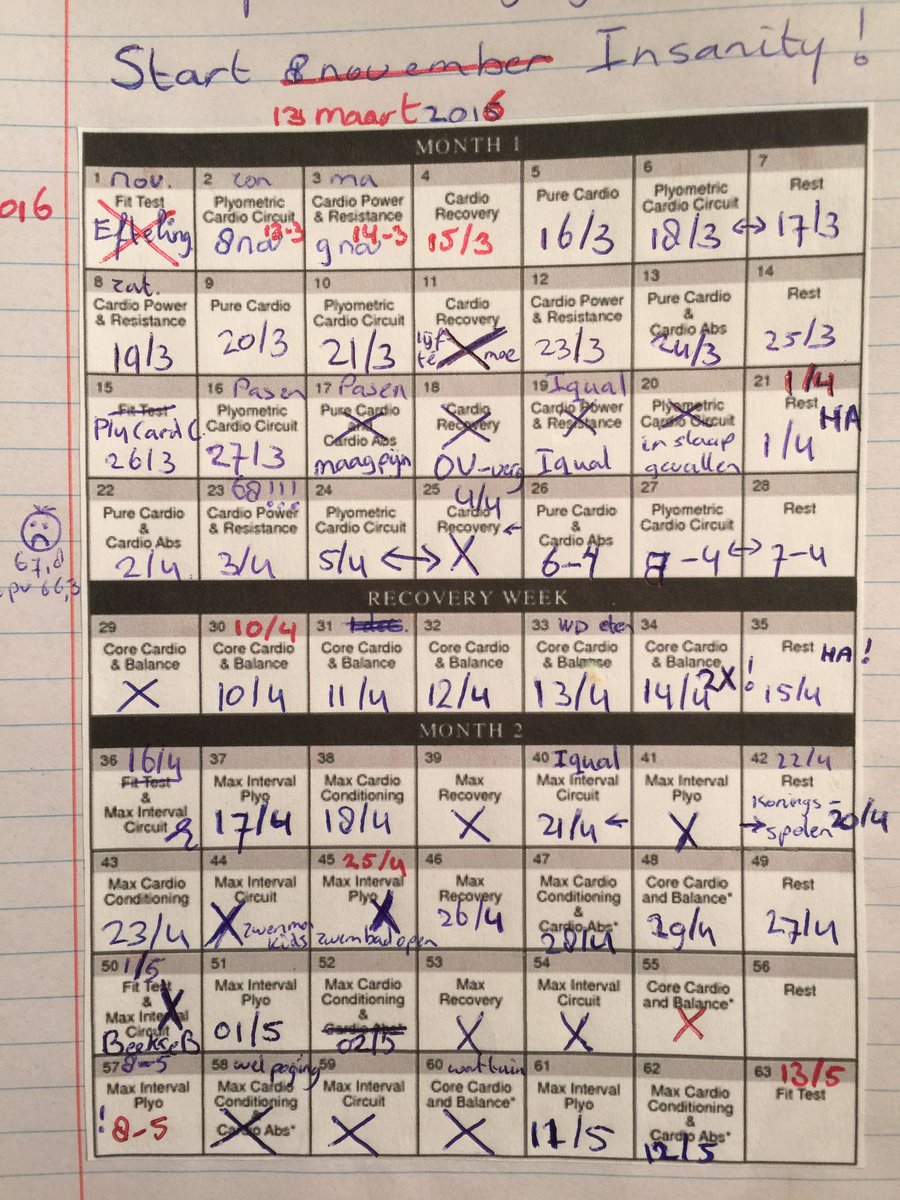 Start 8 november Insanity!
13 maart 2016
016
MONTH 1
1 nov.
Fit Test
Efteling
2 zon
Plyometric
Cardio Circuit
8 nov 13-3
3 ma
Cardio Power
& Resistance
9 nov 14-3
4
Cardio
Recovery
15/3
5
Pure Cardio
16/3
6
Plyometric
Cardio Circuit
18/3 ↔
7
Rest
17/3
8 zat.
Cardio Power
& Resistance
19/3
9
Pure Cardio
20/3
10
Plyometric
Cardio Circuit
21/3
11
Cardio
Recovery
lijf
te moe
12
Cardio Power
& Resistance
23/3
13
Pure Cardio
&
Cardio Abs
24/3
14
Rest
25/3
15
Fit Test
Ply Card C.
26/3
16 Pasen
Plyometric
Cardio Circuit
27/3
17 Pasen
Pure Cardio
and
Cardio Abs
maagpijn
18
Cardio
Recovery
OV-verg
19 Iqual
Cardio Power
& Resistance
Iqual
20
Plyometric
Cardio Circuit
in slaap
gevallen
21 1/4
Rest
HA
1/4
22
Pure Cardio
&
Cardio Abs
2/4
23 68!!!
Cardio Power
& Resistance
3/4
24
Plyometric
Cardio Circuit
5/4 ↔
25 4/4
Cardio
Recovery ←
X
26
Pure Cardio
&
Cardio Abs
6-4
27
Plyometric
Cardio Circuit
8-4 ↔
28
Rest
7-4
67,8
66,3
RECOVERY WEEK
29
Core Cardio
& Balance
X
30 10/4
Core Cardio
& Balance
10/4
31
Core Cardio
& Balance
11/4
32
Core Cardio
& Balance
12/4
33 WD eten
Core Cardio
& Balance
13/4
34
Core Cardio
& Balance
14/4 2X!
35
Rest HA!
15/4
MONTH 2
36 16/4
Fit Test
&
Max Interval
Circuit
37
Max Interval
Plyo
17/4
38
Max Cardio
Conditioning
18/4
39
Max
Recovery
X
40 Iqual
Max Interval
Circuit
21/4 ←
41
Max Interval
Plyo
X
42 22/4
Rest
Konings-
→ spelen 20/4
43
Max Cardio
Conditioning
23/4
44
Max Interval
Circuit
X
kids
45 25/4
Max Interval
Plyo
X
zwembad open
46
Max
Recovery
26/4
47
Max Cardio
Conditioning
&
Cardio Abs*
28/4
48
Core Cardio
and Balance*
29/4
49
Rest
27/4
50 1/5
Fit Test
&
Max Interval
Circuit
X
Beekse B
51
Max Interval
Plyo
01/5
52
Max Cardio
Conditioning
&
Cardio Abs*
02/5
53
Max
Recovery
X
54
Max Interval
Circuit
X
55
Core Cardio
and Balance*
X
56
Rest
57 8-5
Max Interval
Plyo
! 8-5
58 wel poging
Max Cardio
Conditioning
&
Cardio Abs*
59
Max Interval
Circuit
X
60
Core Cardio
and Balance*
X
61
Max Interval
Plyo
11/5
62
Max Cardio
Conditioning
&
Cardio Abs*
12/5
63 13/5
Fit Test